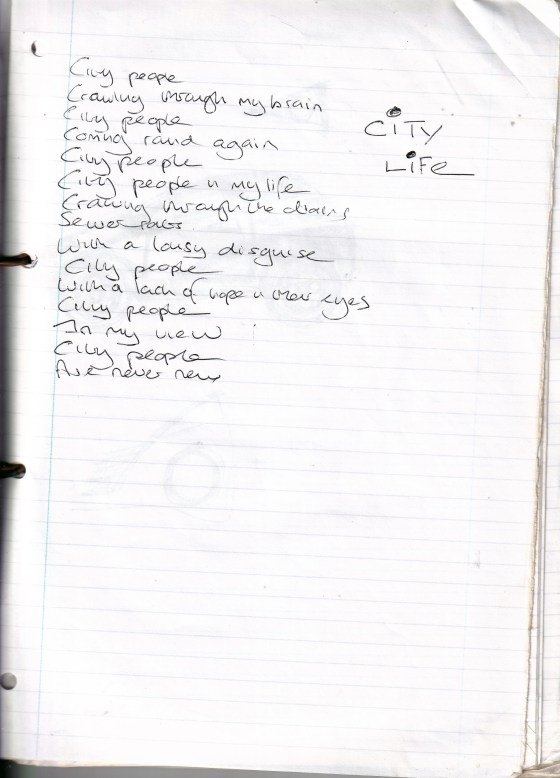 CiTY
LiFe
City people
Crawling through my brain
City people
Coming round again
City people
City people in my life
Crawling through the drains
Sewer rats
With a lousy disguise
City people
With a lack of hope in their eyes
City people
In my view
City people
Are never new